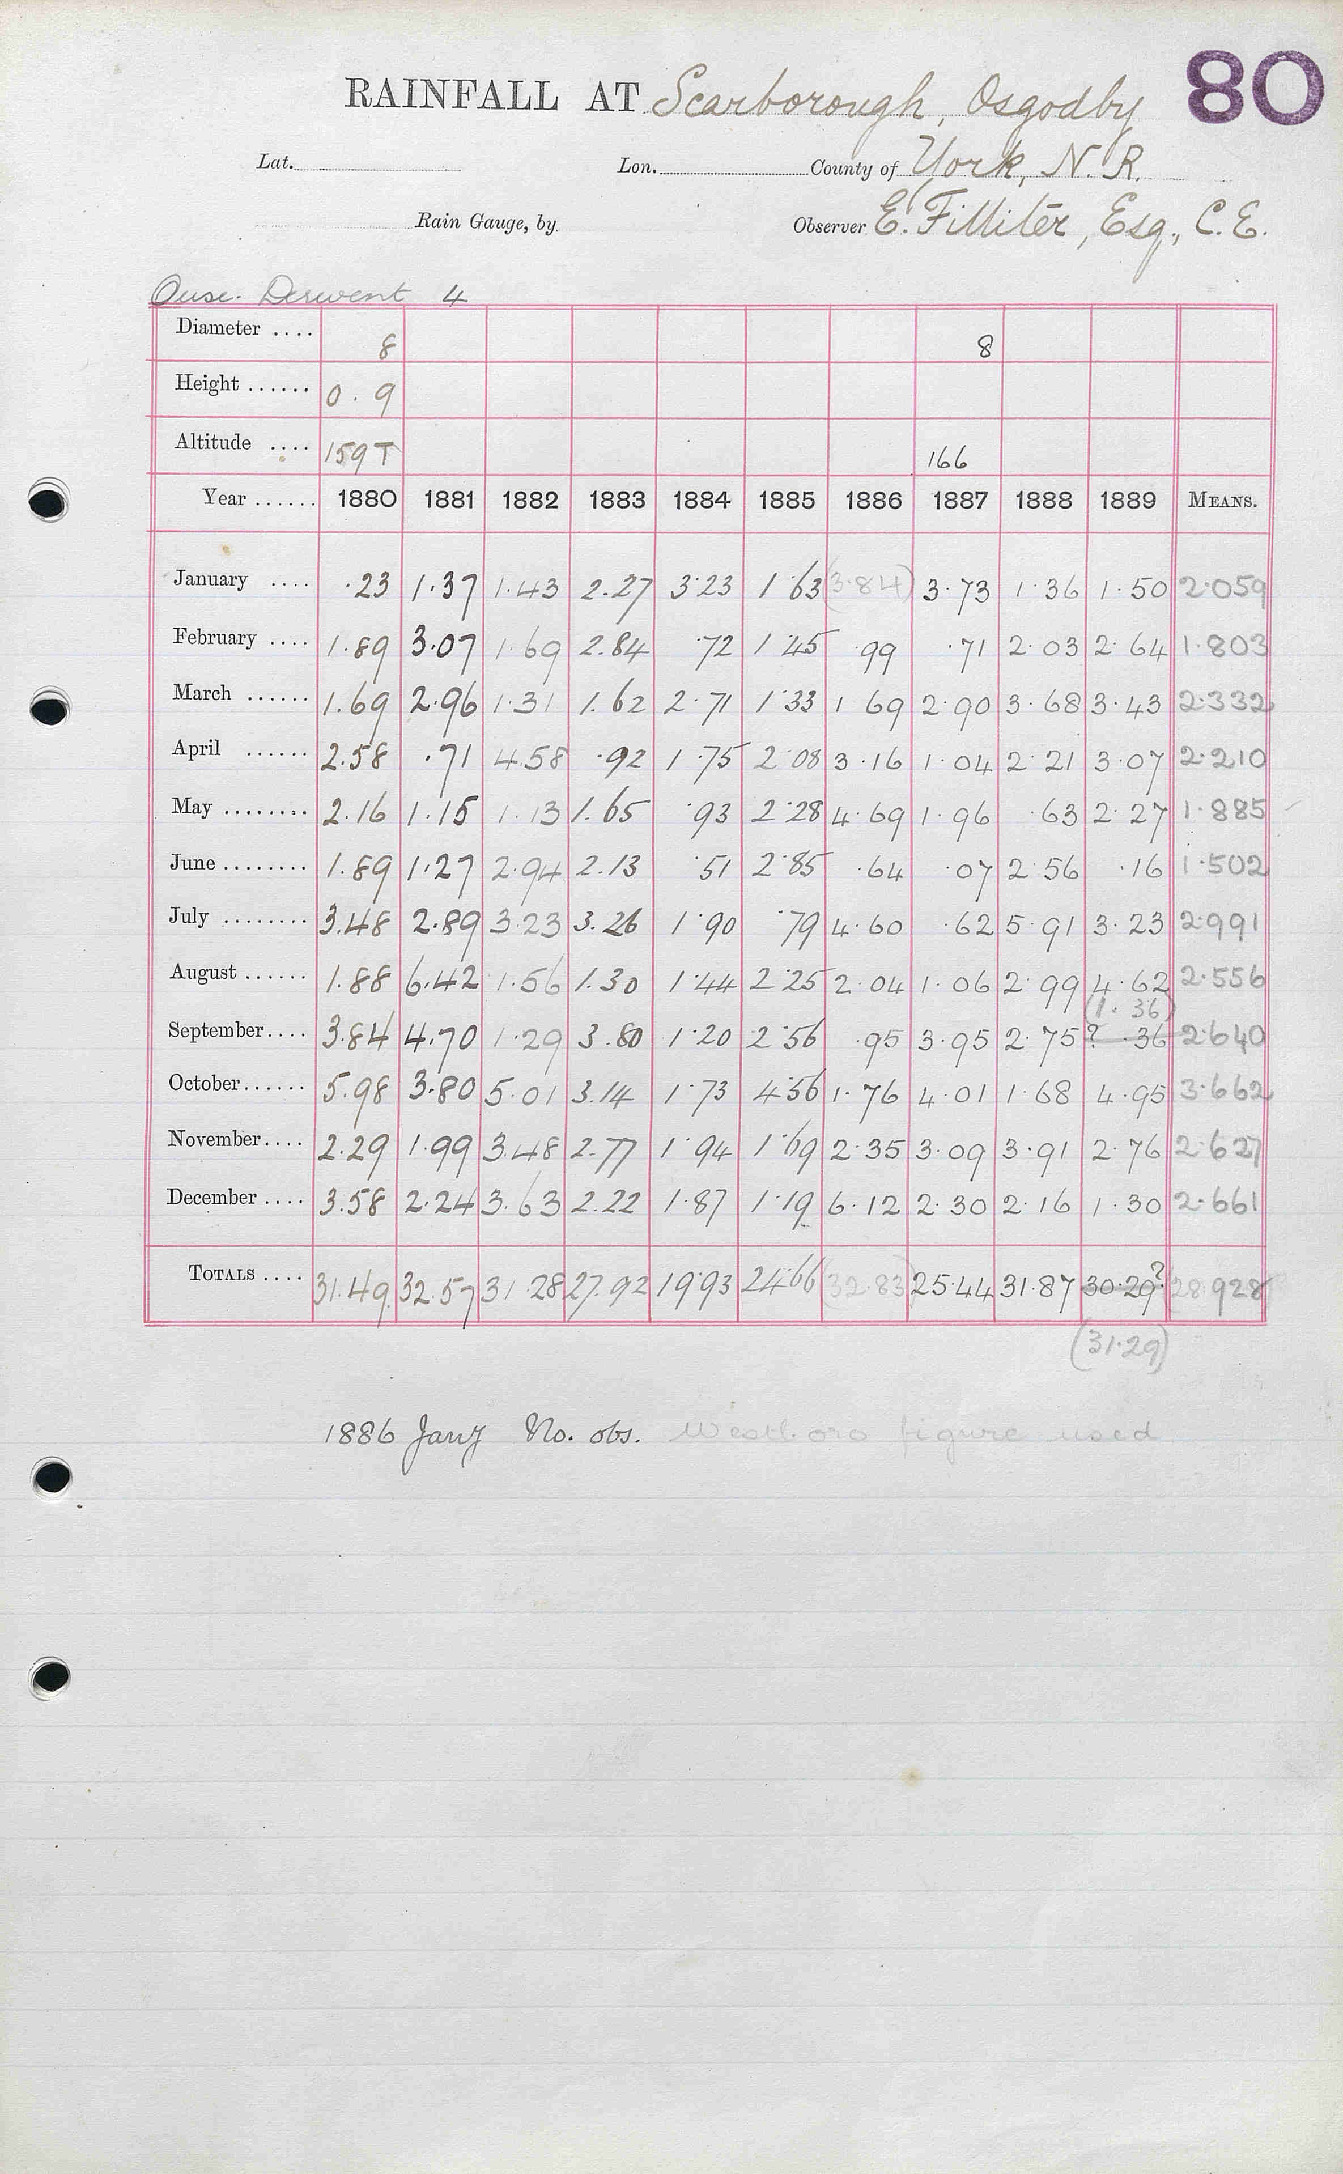 80
RAINFALL AT Scarborough, Osgodby
Lat. Lon. County of York, N. R.
Rain Gauge, by Observer E. Filliter, Esq., C. E.
Ouse. Derwent 4
Diameter .... 8 8
Height ...... 0 . 9
Altitude .... 159 T 166
Year ...... 1880 1881 1882 1883 1884 1885 1886 1887 1888 1889 MEANS.
January .... .23 1.37 1.43 2.27 3.23 1.63 (3.84) 3.73 1.36 1.50 2.059
February .... 1.89 3.07 1.69 2.84 .72 1.45 .99 .71 2.03 2.64 1.803
March ...... 1.69 2.96 1.31 1.62 2.71 1.33 1.69 2.90 3.68 3.43 2.332
April ...... 2.58 .71 4.58 .92 1.75 2.08 3.16 1.04 2.21 3.07 2.210
May ........ 2.16 1.15 1.13 1.65 .93 2.28 4.69 1.96 .63 2.27 1.885
June ........ 1.89 1.27 2.94 2.13 .51 2.85 .64 .07 2.56 .16 1.502
July ........ 3.48 2.89 3.23 3.26 1.90 .79 4.60 .62 5.91 3.23 2.991
August ...... 1.88 6.42 1.56 1.30 1.44 2.25 2.04 1.06 2.99 4.62 2.556
(1.36)
September.... 3.84 4.70 1.29 3.80 1.20 2.56 .95 3.95 2.75 ? .36 2.640
October...... 5.98 3.80 5.01 3.14 1.73 4.56 1.76 4.01 1.68 4.95 3.662
November.... 2.29 1.99 3.48 2.77 1.94 1.69 2.35 3.09 3.91 2.76 2.627
December .... 3.58 2.24 3.63 2.22 1.87 1.19 6.12 2.30 2.16 1.30 2.661
TOTALS .... 31.49 32.57 31.28 27.92 19.93 24.66 (32.83) 25.44 31.87 30.29? 28.928
(31.29)
1886 Jany No. obs. Westboro figure used